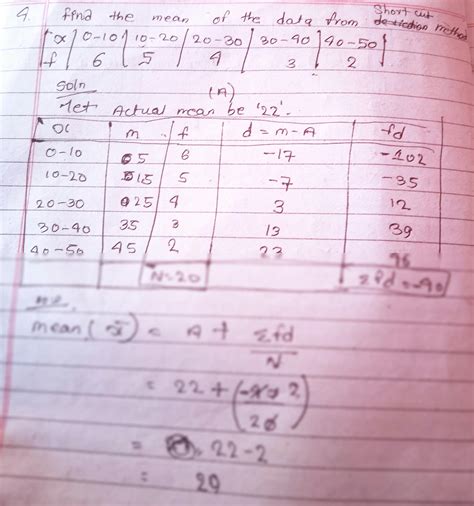 4. find the mean of the data from Short cut method
x | 0-10 | 10-20 | 20-30 | 30-40 | 40-50
f | 6 | 5 | 4 | 3 | 2
Soln
(A)
Let Actual mean be '22'.
x m f d = m-A fd
0-10 5 6 -17 -102
10-20 15 5 -7 -35
20-30 25 4 3 12
30-40 35 3 13 39
40-50 45 2 23
N=20 Σfd=-40
mean (x̄) = A + Σfd/N
= 22 + (-2/20)
= 22-2
= 20